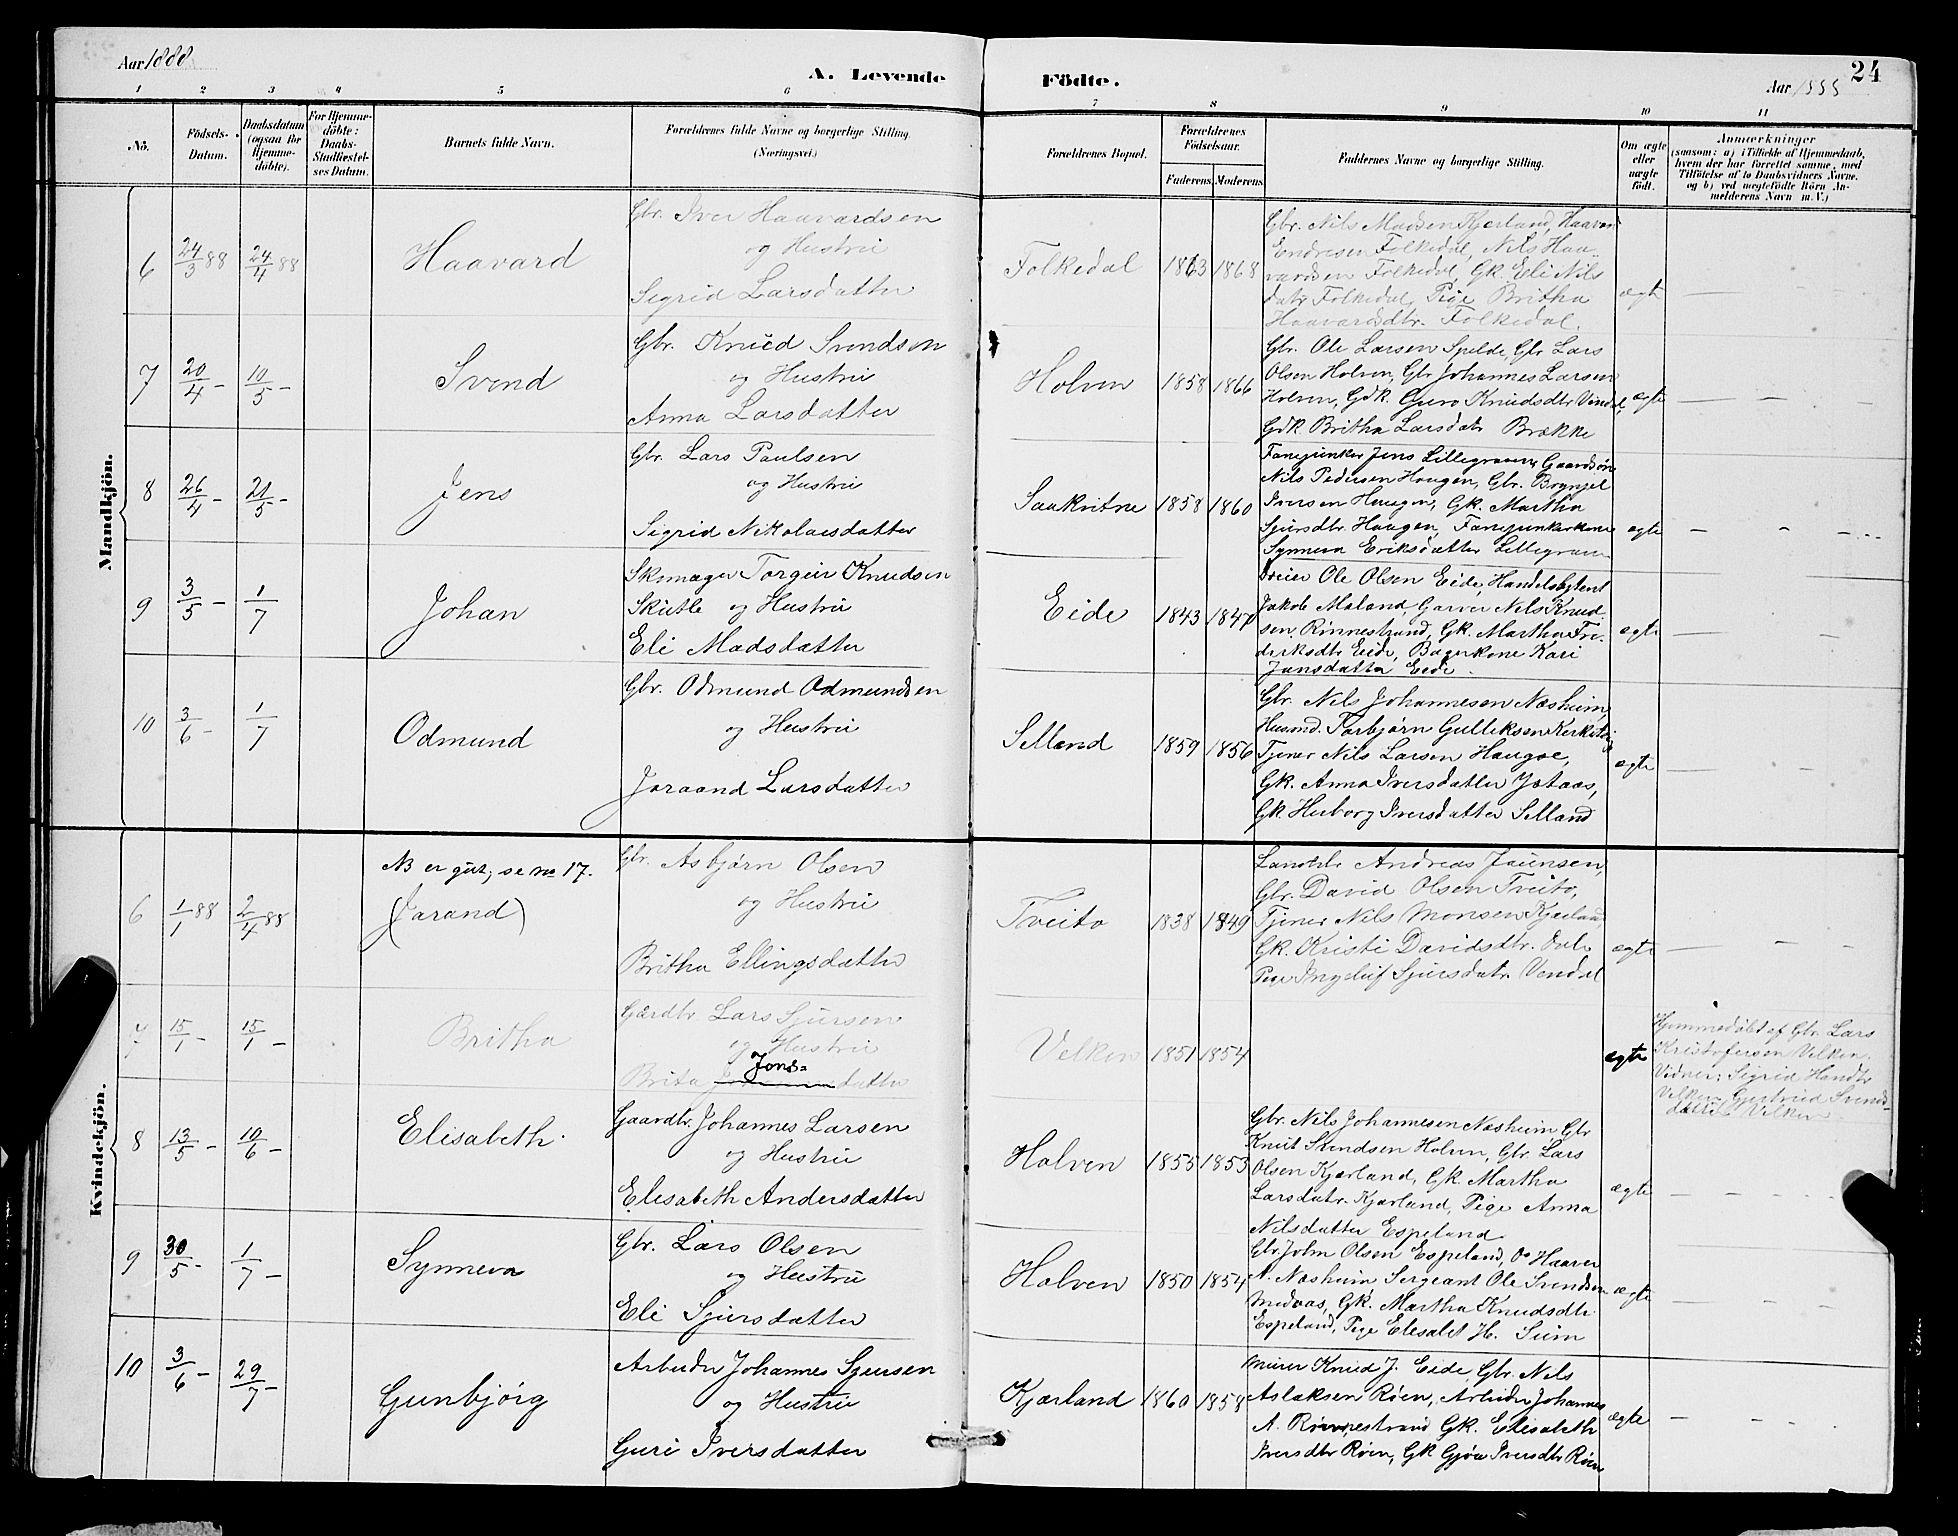 Aar 1888
A. Levende Födte.
Aar 1888
24
1 2 3 4 5 6 7 8 9 10 11
No.
Födsels-Datum.
Daabsdatum (ogsaa for Hjemme-döbte).
For Hjemme-döbte: Daabs-Stadfæstel-ses Datum.
Barnets fulde Navn.
Forældrenes fulde Navne og borgerlige Stilling. (Næringsvei.)
Forældrenes Bopæl.
Forældrenes Födselsaar.
Faderens. Moderens.
Faddernes Navne og borgerlige Stilling.
Om ægte eller uægte födt.
Anmærkninger
(saasom: a) i Tilfælde af Hjemmedaab,
hvem der har forrettet samme, med
Tilföielse af to Daabsvidners Navne,
og b) ved uægtefödte Börn An-
melderens Navn m. V.)
Mandkjön.
6 24/3 88 24/4 88 Haavard
Gbr. Iver Haavardsen
og Hustru
Sigrid Larsdatter
Folkedal 1863 1868
Gbr. Nils Madsen Kjerland, Haavar
Endresen Folkedal, Nils Haa-
vardsen Folkedal, Gk. Eli Nils
datr Folkedal, Pige Britha
Haavardsdtr. Folkedal.
ægte — — —
7 20/4 – 10/5 – Svend
Gbr. Knud Svendsen
og Hustru
Anna Larsdatter
Holven 1858 1866
Gbr. Ole Larsen Spilde, Gbr Lars
Olsen Holven, Gbr Johannes Larsen
Holven, Gdk. Guro Knudsdtr Vendal,
Gdk Britha Larsdatr Brække
ægte — — —
8 26/4 – 21/5 – Jens
Gbr. Lars Paulsen
og Hustru
Sigrid Nikolaisdatter
Saakvitne 1858 1860
Fanejunker Jens Lillegraven, Gaardsøn
Nils Pedersen Haugen, Gbr. Brynjel
Iversen Haugen, Gk. Martha
Sjursdtr. Haugen, Fanejunkerkone
Synneva Eriksdatter Lillegraven
ægte — — —
9 3/5 – 1/7 Johan
Skomager Torgeir Knudsen
Skutle og Hustru
Eli Madsdatter
Eide 1843 1847
Dreier Ole Olsen Eide, Handelsbetjent
Jakob Maland, Garver Nils Knud
sen Rønnestrand, Gk. Martha Fre-
driksdtr Eide, Bagerkone Kari
Jonsdatter Eide.
ægte — — —
10 3/6 – 1/7 Odmund
Gbr. Odmund Odmundsen
og Hustru
Joraand Larsdatter
Selland 1859 1856
Gbr. Nils Johannesen Næsheim,
Husmd. Torbjørn Gulleksen
Tjener Nils Larsen Haugse,
Gk. Anna Iversdatter Jøtaas,
Gk Herborg Iversdatter Selland
ægte — — —
Kvindekjön.
NB er gut, se no 17.
6 1/1 88 2/4 88 (Jarand)
Gbr. Asbjørn Olsen
og Hustru
Britha Ellingsdatter
Tveito 1838 1849
Landhlr Andreas Jaunsen,
Gbr. David Olsen Tveito,
Tjener Nils Monsen Kjærland,
Gk. Kristi Davidsdtr. Dale
Pige Ingeleif Sjursdatr Vendal
ægte — — —
7 15/1 – 15/1 – Britha
Gaardbr Lars Sjursen
og Hustru
Brita Jons-datter
Velken 1851 1854
ægte
Hjemmedøbt af Gbr. Lars
Kristofersen Velken.
Vidner: Sigrid Hansdtr
Velken, Gjertrud Svends-
datter Velken
8 13/5 – 10/6 – Elisabeth
Gaardbr. Johannes Larsen
og Hustru
Elisabeth Andersdatter
Holven 1855 1853
Gbr. Nils Johannesen Næsheim Gbr
Knut Svendsen Holven, Gbr. Lars
Olsen Kjærland, Gk. Martha
Larsdatr. Kjærland, Pige Anna
Nilsdatter Espeland
ægte — — —
9 30/5 – 1/7 – Synneva
Gbr. Lars Olsen
og Hustru
Eli Sjursdatter
Holven 1850 1854
Gbr John Olsen Espeland, Do Haaver
N. Næsheim Sergeant Ole Svendsen
Medaas, Gk. Martha Knudsdtr
Espeland, Pige Elisabet H. Siim
ægte — — —
10 3/6 – 29/7 – Gunbjörg
Arbeider Johannes Sjursen
og Hustru
Guri Iversdatter
Kjærland 1860 1858
Murer Knud J. Eide, Gbr. Nils
Aslaksen Röen, Arbeider Johannes
A. Rønnestrand Gk. Elisabeth
Iversdtr Röen, Gk Gjöa Iversdtr Röen
ægte — — —